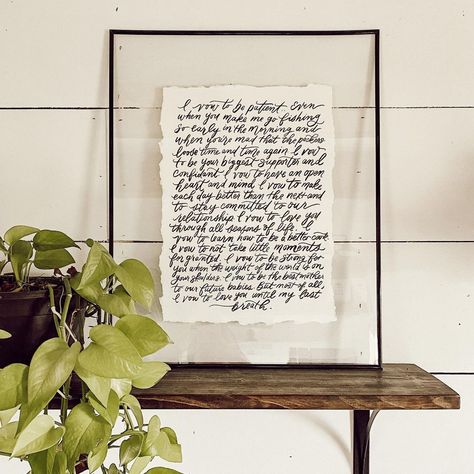 I vow to be patient. Even
when you make me go fishing
so early in the morning and
when you're mad that the packers
loose time and time again. I vow
to be your biggest supporter and
confidant. I vow to have an open
heart and mind. I vow to make
each day better than the next and
to stay committed to our
relationship. I vow to love you
through all seasons of life. I
vow to learn how to be a better cook.
I vow to not take little moments
for granted. I vow to be strong for
you when the weight of the world is on
your shoulders. I vow to be the best mother
to our future babies. But most of all,
I vow to love you until my last
breath.